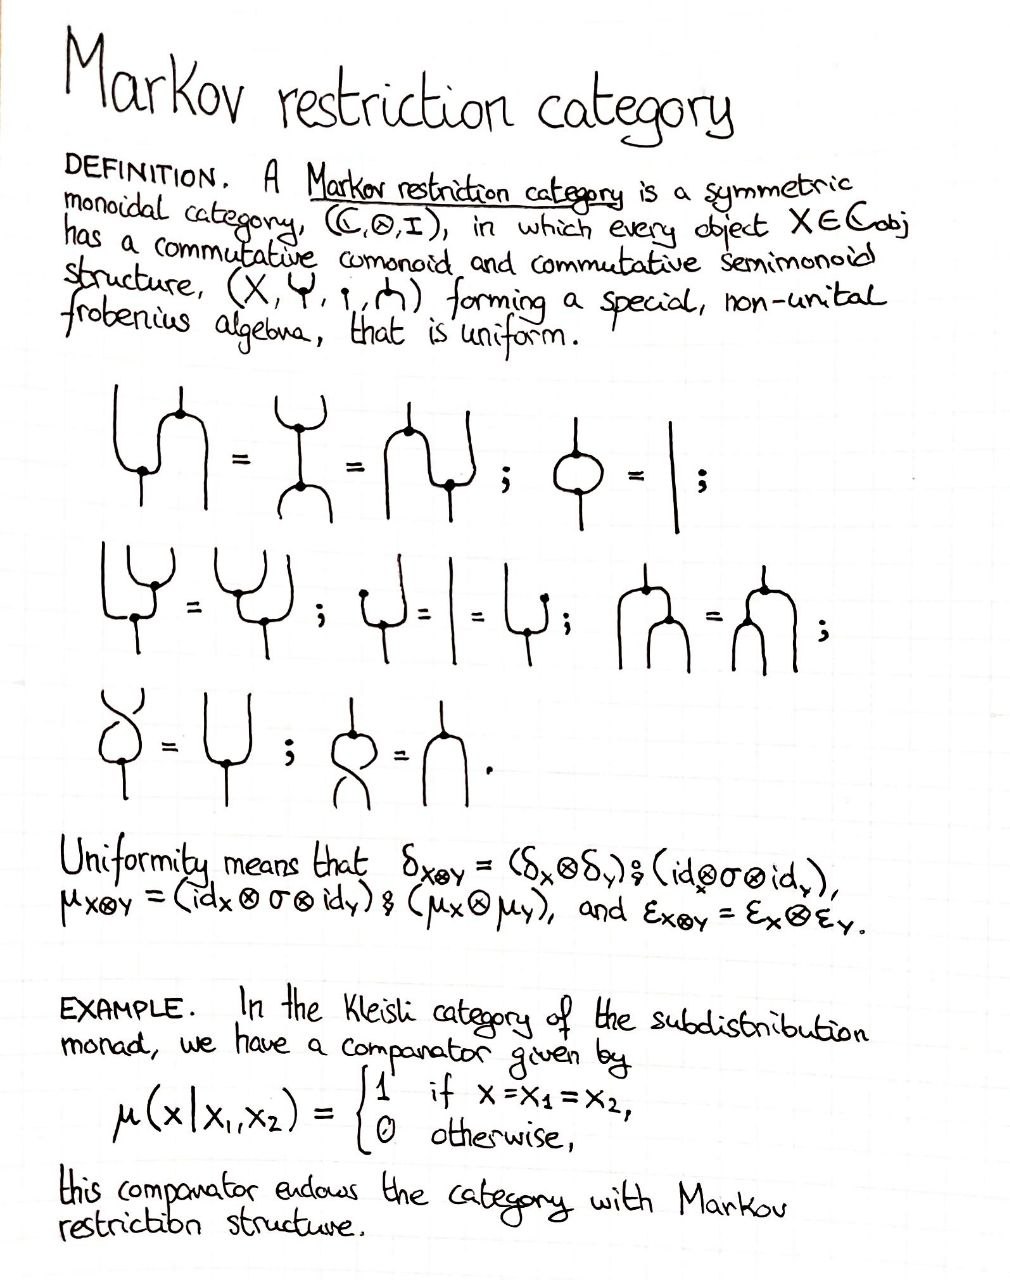 Markov restriction category
DEFINITION. A Markov restriction category is a symmetric
monoidal category, (ℂ,⊗,I), in which every object X∈ℂobj
has a commutative comonoid and commutative semimonoid
structure, (X, , , ) forming a special, non-unital
frobenius algebra, that is uniform.
= = ; = ;
= ; = = ; = ;
= ; = .
Uniformity means that δ_{X⊗Y} = (δ_X⊗δ_Y)⨾(id_X⊗σ⊗id_Y),
μ_{X⊗Y} = (id_X⊗σ⊗id_Y)⨾(μ_X⊗μ_Y), and ε_{X⊗Y} = ε_X⊗ε_Y.
EXAMPLE. In the Kleisli category of the subdistribution
monad, we have a comparator given by
μ(x|x₁,x₂) = { 1 if x=x₁=x₂,
0 otherwise,
this comparator endows the category with Markov
restriction structure.